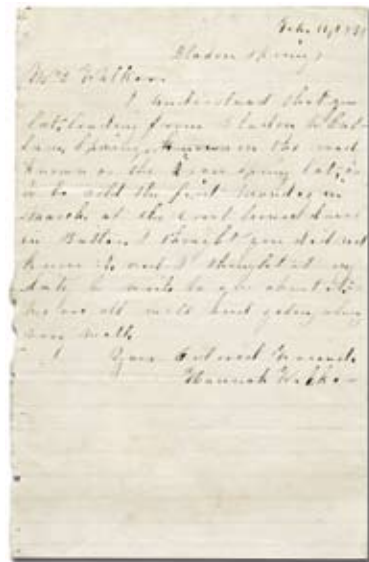 Feb. 11, 1881
Bladon Springs
Mrs Walker
I understand that you
lot, leading from Bladon to Cul-
lom Springs, Known on the road
Known as the Spring lot, is
to be sold the first Monday in
March at the Court house door
in Butler. I thought you did not
know it and I thought it my
duty to write to you about it.
we are all well and getting along
very well.
Your Colored Friend,
Hannah Walker